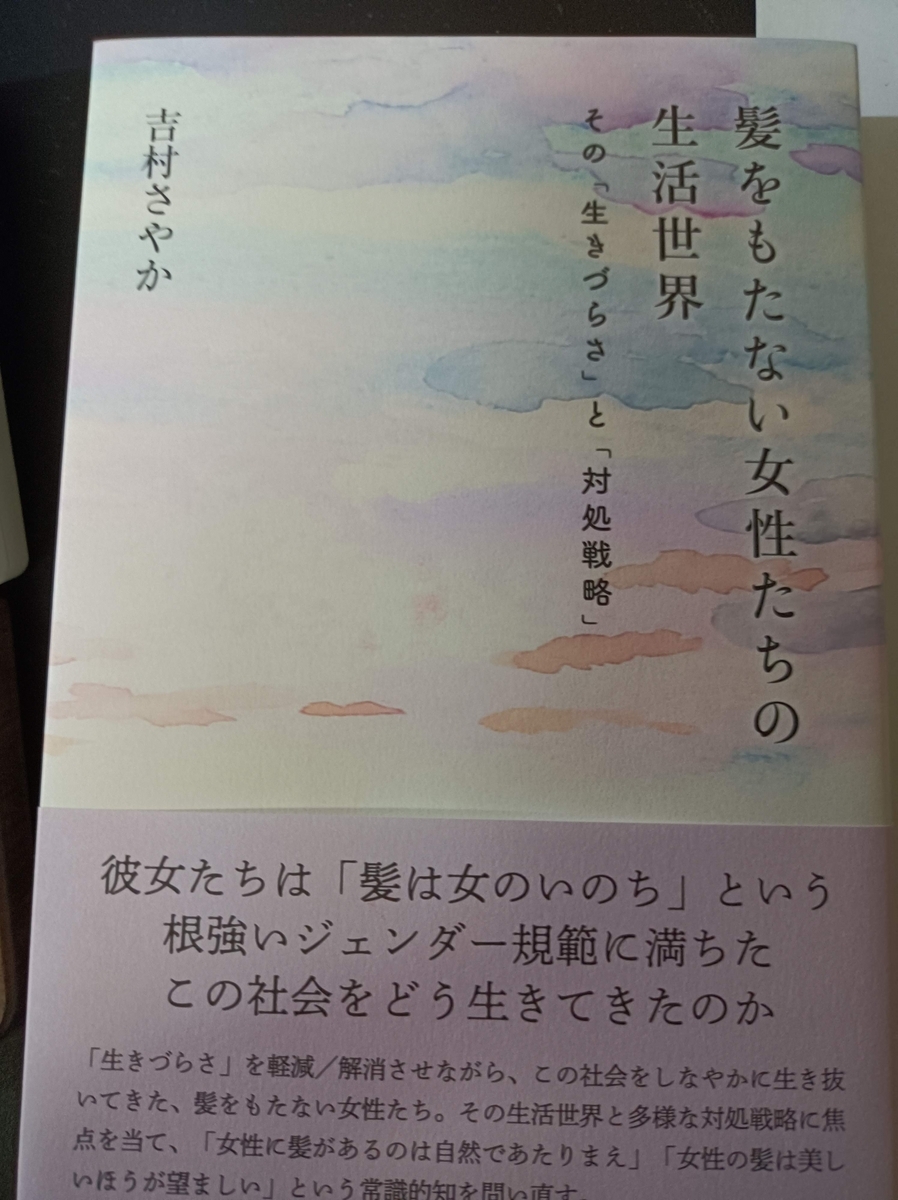 髪をもたない女性たちの
生活世界
その「生きづらさ」と「対処戦略」
吉村さやか
彼女たちは「髪は女のいのち」という
根強いジェンダー規範に満ちた
この社会をどう生きてきたのか
「生きづらさ」を軽減／解消させながら、この社会をしなやかに生き抜
いてきた、髪をもたない女性たち。その生活世界と多様な対処戦略に焦
点を当て、「女性に髪があるのは自然であたりまえ」「女性の髪は美し
いほうが望ましい」という常識的知を問い直す。